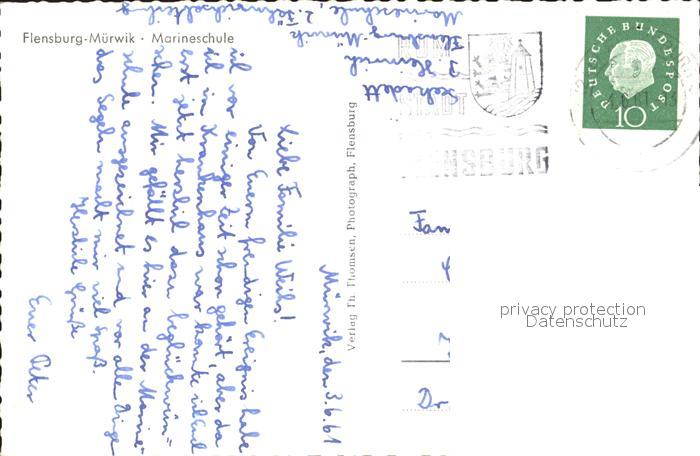 Flensburg-Mürwik · Marineschule
Mürwik, den 3.6.61
Liebe Familie Weihs!
Von Eurem freudigen Ereignis habe
ich vor einiger Zeit schon gehört, aber da
ich im Krankenhaus war konnte ich Euch
erst jetzt herzlich dazu beglückwün-
schen. Mir gefällt es hier an der Marine-
schule ausgezeichnet und vor allen Dingen
das Segeln macht mir viel Spaß.
Herzliche Grüße
Euer Peter
Flensburg-Mürwik
Marineschule 2.
Verlag Th. Thomsen, Photograph, Flensburg
FLENSBURG
DEUTSCHE BUNDESPOST
10
Fam
Dr
privacy protection
Datenschutz